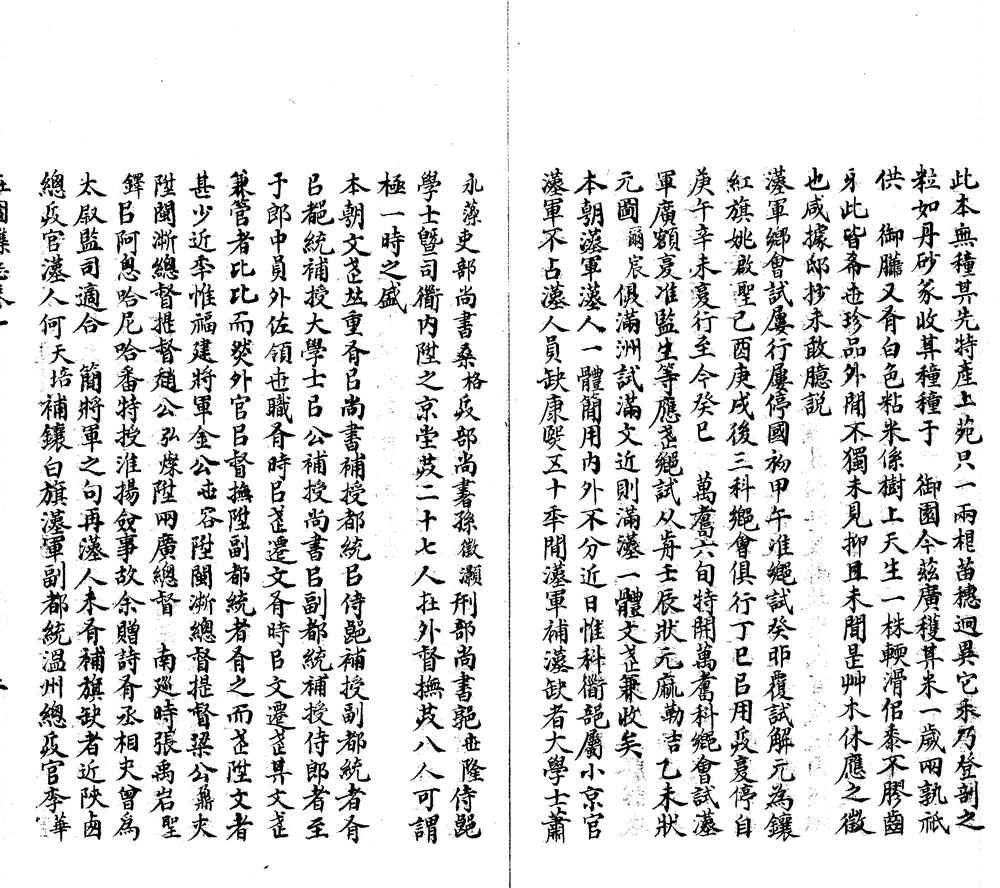 此本無種其先特產上苑只一兩根苗穗迥異它禾乃登剖之
粒如丹砂遂收其種種于 御園今茲廣穫其米一歲兩孰祇
供 御膳又有白色粘米係樹上天生一株輭滑佀黍不膠齒
牙此皆希世珍品外閒不獨未見抑且未聞是艸木休應之徵
也咸據邸抄未敢臆說
漢軍鄉會試屢行屢停國初甲午准鄉試癸卯覆試解元為鑲
紅旗姚啟聖己酉庚戌後三科鄉會俱行丁巳㠯用兵復停自
庚午辛未復行至今癸巳 萬耆六旬特開萬耆科鄉會試漢
軍廣額復准監生等應武鄉試从歬壬辰狀元麻勒吉乙未狀
元圖爾宸俱滿洲試滿文近則滿漢一體文武兼收矣
本朝漢軍漢人一體簡用內外不分近日惟科衜部屬小京官
漢軍不占漢人員缺康熙五十年閒漢軍補漢缺者大學士蕭
永藻吏部尚書桑格兵部尚書孫徵灝刑部尚書郭世隆侍郎
學士曁司衜內陞之京堂茂二十七人在外督撫茂八人可謂
極一時之盛
本朝文武竝重有㠯尚書補授都統㠯侍郎補授副都統者有
㠯都統補授大學士㠯公補授尚書㠯副都統補授侍郎者至
于郎中員外佐領世職有時㠯武遷文有時㠯文遷武其文武
兼管者比比而然外官㠯督撫陞副都統者有之而武陞文者
甚少近年惟福建將軍金公世容陞閩浙總督提督梁公鼐夫
陞閩浙總督提督趙公弘燦陞兩廣總督 南巡時張禹岩聖
鐸㠯阿思哈尼哈番特授淮揚僉事故余贈詩有丞相夫曾為
太尉監司適合 簡將軍之句再漢人未有補旗缺者近陝西
總兵官漢人何天培補鑲白旗漢軍副都統溫州總兵官李華
在園雜志卷一